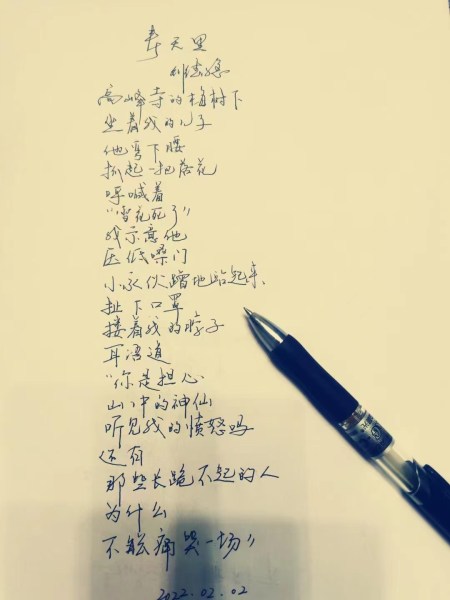 春天里
高峰寺的梅树下
坐着我的儿子
他弯下腰
抓起一把落花
呼喊着
“雪花死了”
我示意他
压低嗓门
小家伙蹭地站起来
扯下口罩
搂着我的脖子
耳语道
“你是担心
山中的神仙
听见我的愤怒吗
还有
那些长跪不起的人
为什么
不能痛哭一场”
2022.02.02